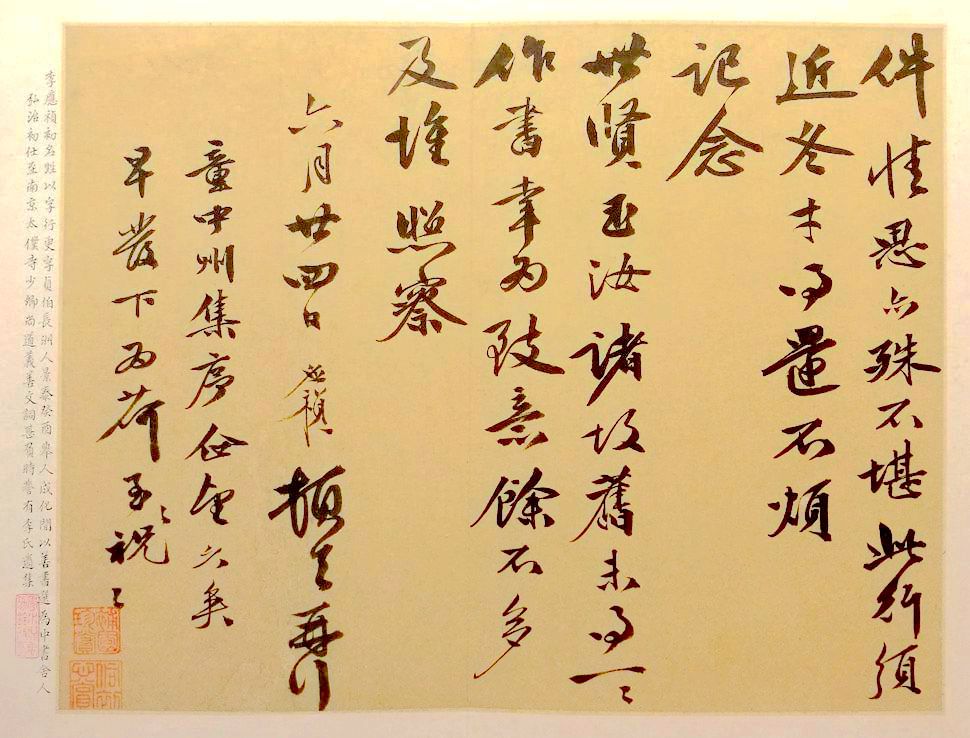 件情思亦殊不堪此行須
近冬才得還不煩
記念
世賢玉汝諸故舊未得一一
作書幸為致意餘不多
及惟照察
六月廿四日應禎頓首再拜
童中州集序
早發下為荷至祝至祝
李應禎初名甡以字行更字貞伯長洲人景泰癸酉舉人成化間以善書選為中書舍人
弘治初仕至南京太僕寺少卿尚道義善文詞甚負時譽有李氏遺集